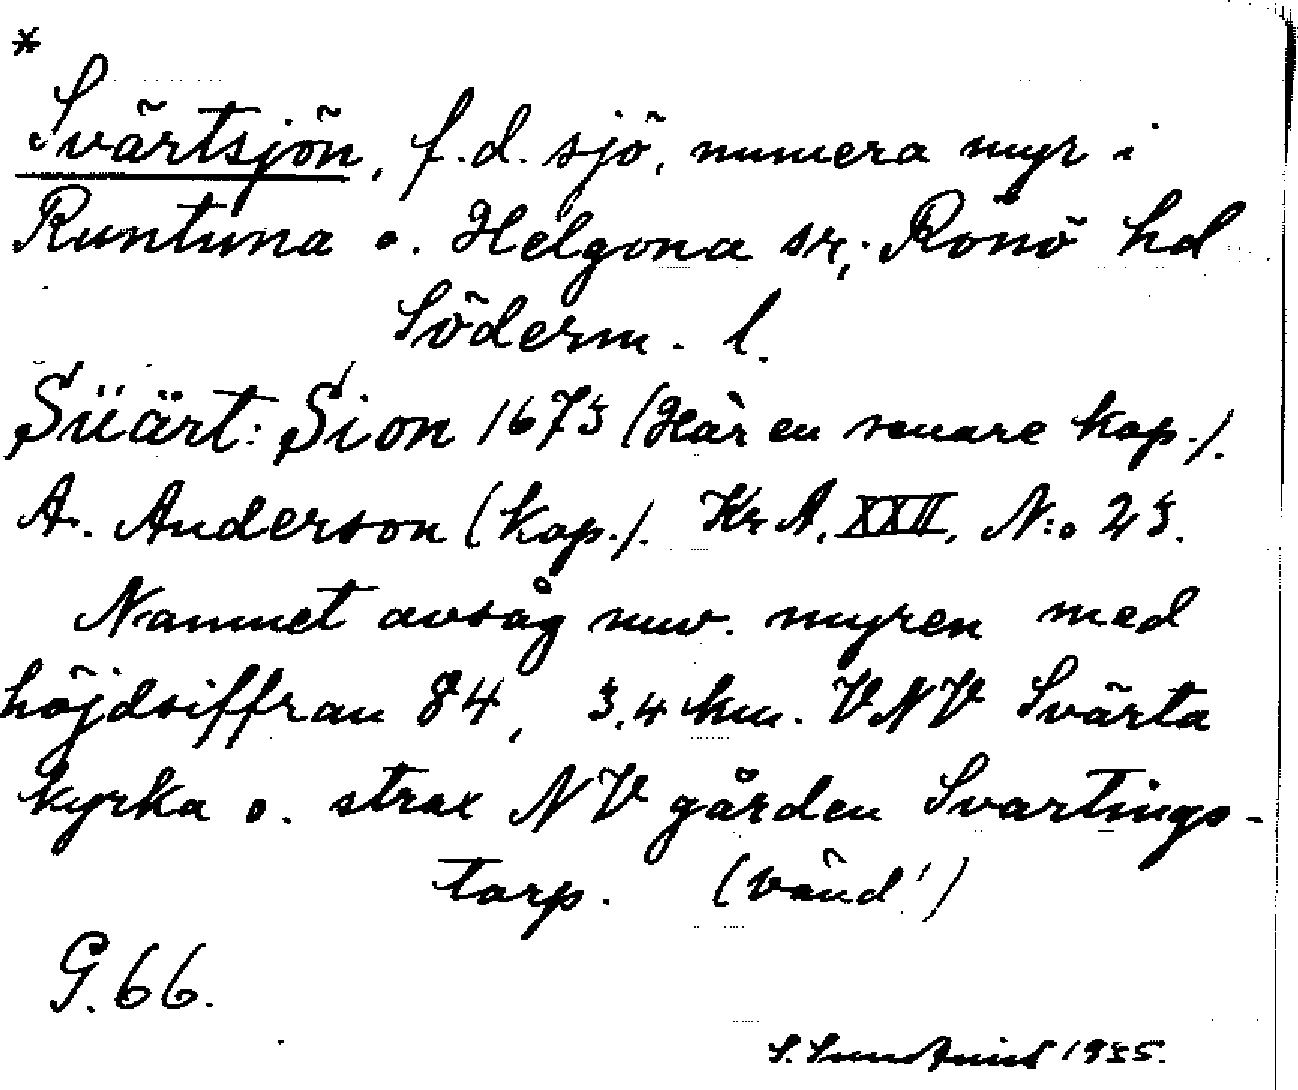 *
Svärtsjön, f.d. sjö, numera myr i
Runtuna o. Helgona sr, Rönö hd
Söderm. l.
Süärt: Sion 1673 (Här en senare kop.).
A. Anderson (kop.). Kr A. XXII, N:o 23.
Namnet avsåg nuv. myren med
höjdsiffran 84, 3,4 km. VNV Svärta
kyrka o. strax NV gården Svartings-
torp. (vänd!)
G. 66.
S. 1935.